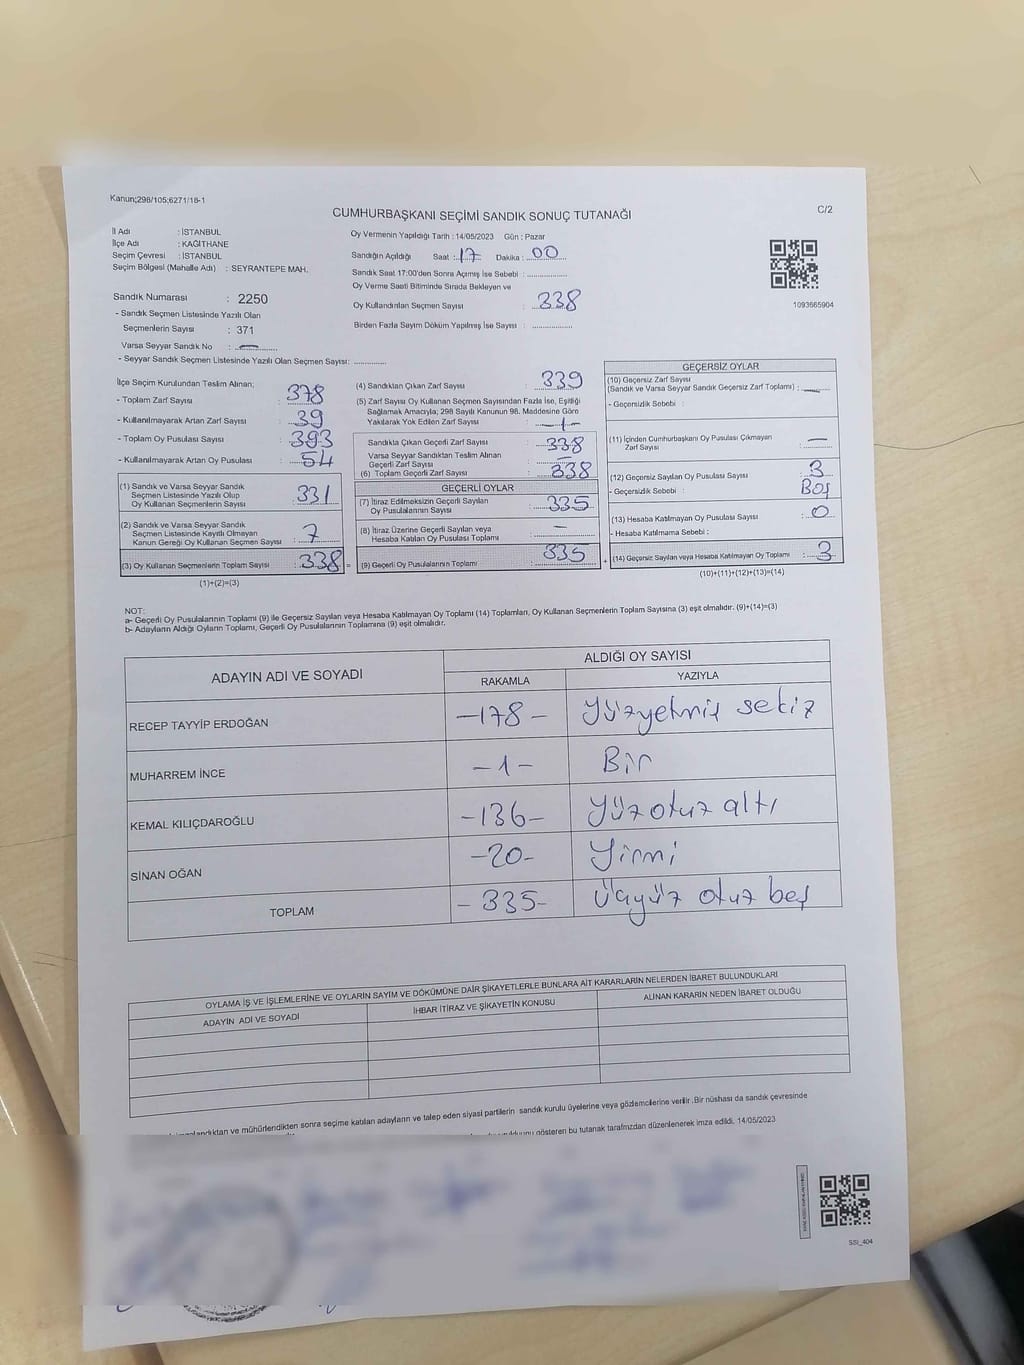 Kanun;298/105;6271/18-1
CUMHURBAŞKANI SEÇİMİ SANDIK SONUÇ TUTANAĞI
C/2
İl Adı : İSTANBUL
İlçe Adı : KAĞITHANE
Seçim Çevresi : İSTANBUL
Seçim Bölgesi (Mahalle Adı) : SEYRANTEPE MAH.
Sandık Numarası : 2250
- Sandık Seçmen Listesinde Yazılı Olan
Seçmenlerin Sayısı : 371
Varsa Seyyar Sandık No : —
- Seyyar Sandık Seçmen Listesinde Yazılı Olan Seçmen Sayısı: ............
Oy Vermenin Yapıldığı Tarih : 14/05/2023 Gün : Pazar
Sandığın Açıldığı Saat : 17 Dakika : 00
Sandık Saat 17:00'den Sonra Açılmış İse Sebebi : ............
Oy Verme Saati Bitiminde Sırada Bekleyen ve
Oy Kullandırılan Seçmen Sayısı : 338
Birden Fazla Sayım Döküm Yapılmış İse Sayısı : ............
1093665904
İlçe Seçim Kurulundan Teslim Alınan;
- Toplam Zarf Sayısı : 378
- Kullanılmayarak Artan Zarf Sayısı : 39
- Toplam Oy Pusulası Sayısı : 393
- Kullanılmayarak Artan Oy Pusulası : 54
(1) Sandık ve Varsa Seyyar Sandık
Seçmen Listesinde Yazılı Olup
Oy Kullanan Seçmenlerin Sayısı : 331
(2) Sandık ve Varsa Seyyar Sandık
Seçmen Listesinde Kayıtlı Olmayan
Kanun Gereği Oy Kullanan Seçmen Sayısı : 7
(3) Oy Kullanan Seçmenlerin Toplam Sayısı : 338 =
(1)+(2)=(3)
(4) Sandıktan Çıkan Zarf Sayısı : 339
(5) Zarf Sayısı Oy Kullanan Seçmen Sayısından Fazla İse, Eşitliği
Sağlamak Amacıyla; 298 Sayılı Kanunun 98. Maddesine Göre
Yakılarak Yok Edilen Zarf Sayısı : —1—
Sandıkta Çıkan Geçerli Zarf Sayısı : 338
Varsa Seyyar Sandıktan Teslim Alınan
Geçerli Zarf Sayısı : —
(6) Toplam Geçerli Zarf Sayısı : 338
GEÇERLİ OYLAR
(7) İtiraz Edilmeksizin Geçerli Sayılan
Oy Pusulalarının Sayısı : 335
(8) İtiraz Üzerine Geçerli Sayılan veya
Hesaba Katılan Oy Pusulası Toplamı : —
(9) Geçerli Oy Pusulalarının Toplamı : 335 +
GEÇERSİZ OYLAR
(10) Geçersiz Zarf Sayısı
(Sandık ve Varsa Seyyar Sandık Geçersiz Zarf Toplamı) : —
- Geçersizlik Sebebi :
(11) İçinden Cumhurbaşkanı Oy Pusulası Çıkmayan
Zarf Sayısı : —
(12) Geçersiz Sayılan Oy Pusulası Sayısı : 3
- Geçersizlik Sebebi : Boş
(13) Hesaba Katılmayan Oy Pusulası Sayısı : 0
- Hesaba Katılmama Sebebi :
(14) Geçersiz Sayılan veya Hesaba Katılmayan Oy Toplamı : 3
(10)+(11)+(12)+(13)=(14)
NOT:
a- Geçerli Oy Pusulalarının Toplamı (9) ile Geçersiz Sayılan veya Hesaba Katılmayan Oy Toplamı (14) Toplamları, Oy Kullanan Seçmenlerin Toplam Sayısına (3) eşit olmalıdır. (9)+(14)=(3)
b- Adayların Aldığı Oyların Toplamı, Geçerli Oy Pusulalarının Toplamına (9) eşit olmalıdır.
ADAYIN ADI VE SOYADI
ALDIĞI OY SAYISI
RAKAMLA YAZIYLA
RECEP TAYYİP ERDOĞAN -178- Yüzyetmiş sekiz
MUHARREM İNCE -1- Bir
KEMAL KILIÇDAROĞLU -136- Yüz otuz altı
SİNAN OĞAN -20- Yirmi
TOPLAM -335- Üçyüz otuz beş
OYLAMA İŞ VE İŞLEMLERİNE VE OYLARIN SAYIM VE DÖKÜMÜNE DAİR ŞİKAYETLERLE BUNLARA AİT KARARLARIN NELERDEN İBARET BULUNDUKLARI
ADAYIN ADI VE SOYADI İHBAR İTİRAZ VE ŞİKAYETİN KONUSU ALINAN KARARIN NEDEN İBARET OLDUĞU
ve mühürlendikten sonra seçime katılan adayların ve talep eden siyasi partilerin sandık kurulu üyelerine veya gözlemcilerine verilir. Bir nüshası da sandık çevresinde
gösteren bu tutanak tarafımızdan düzenlenerek imza edildi. 14/05/2023
SSİ_404